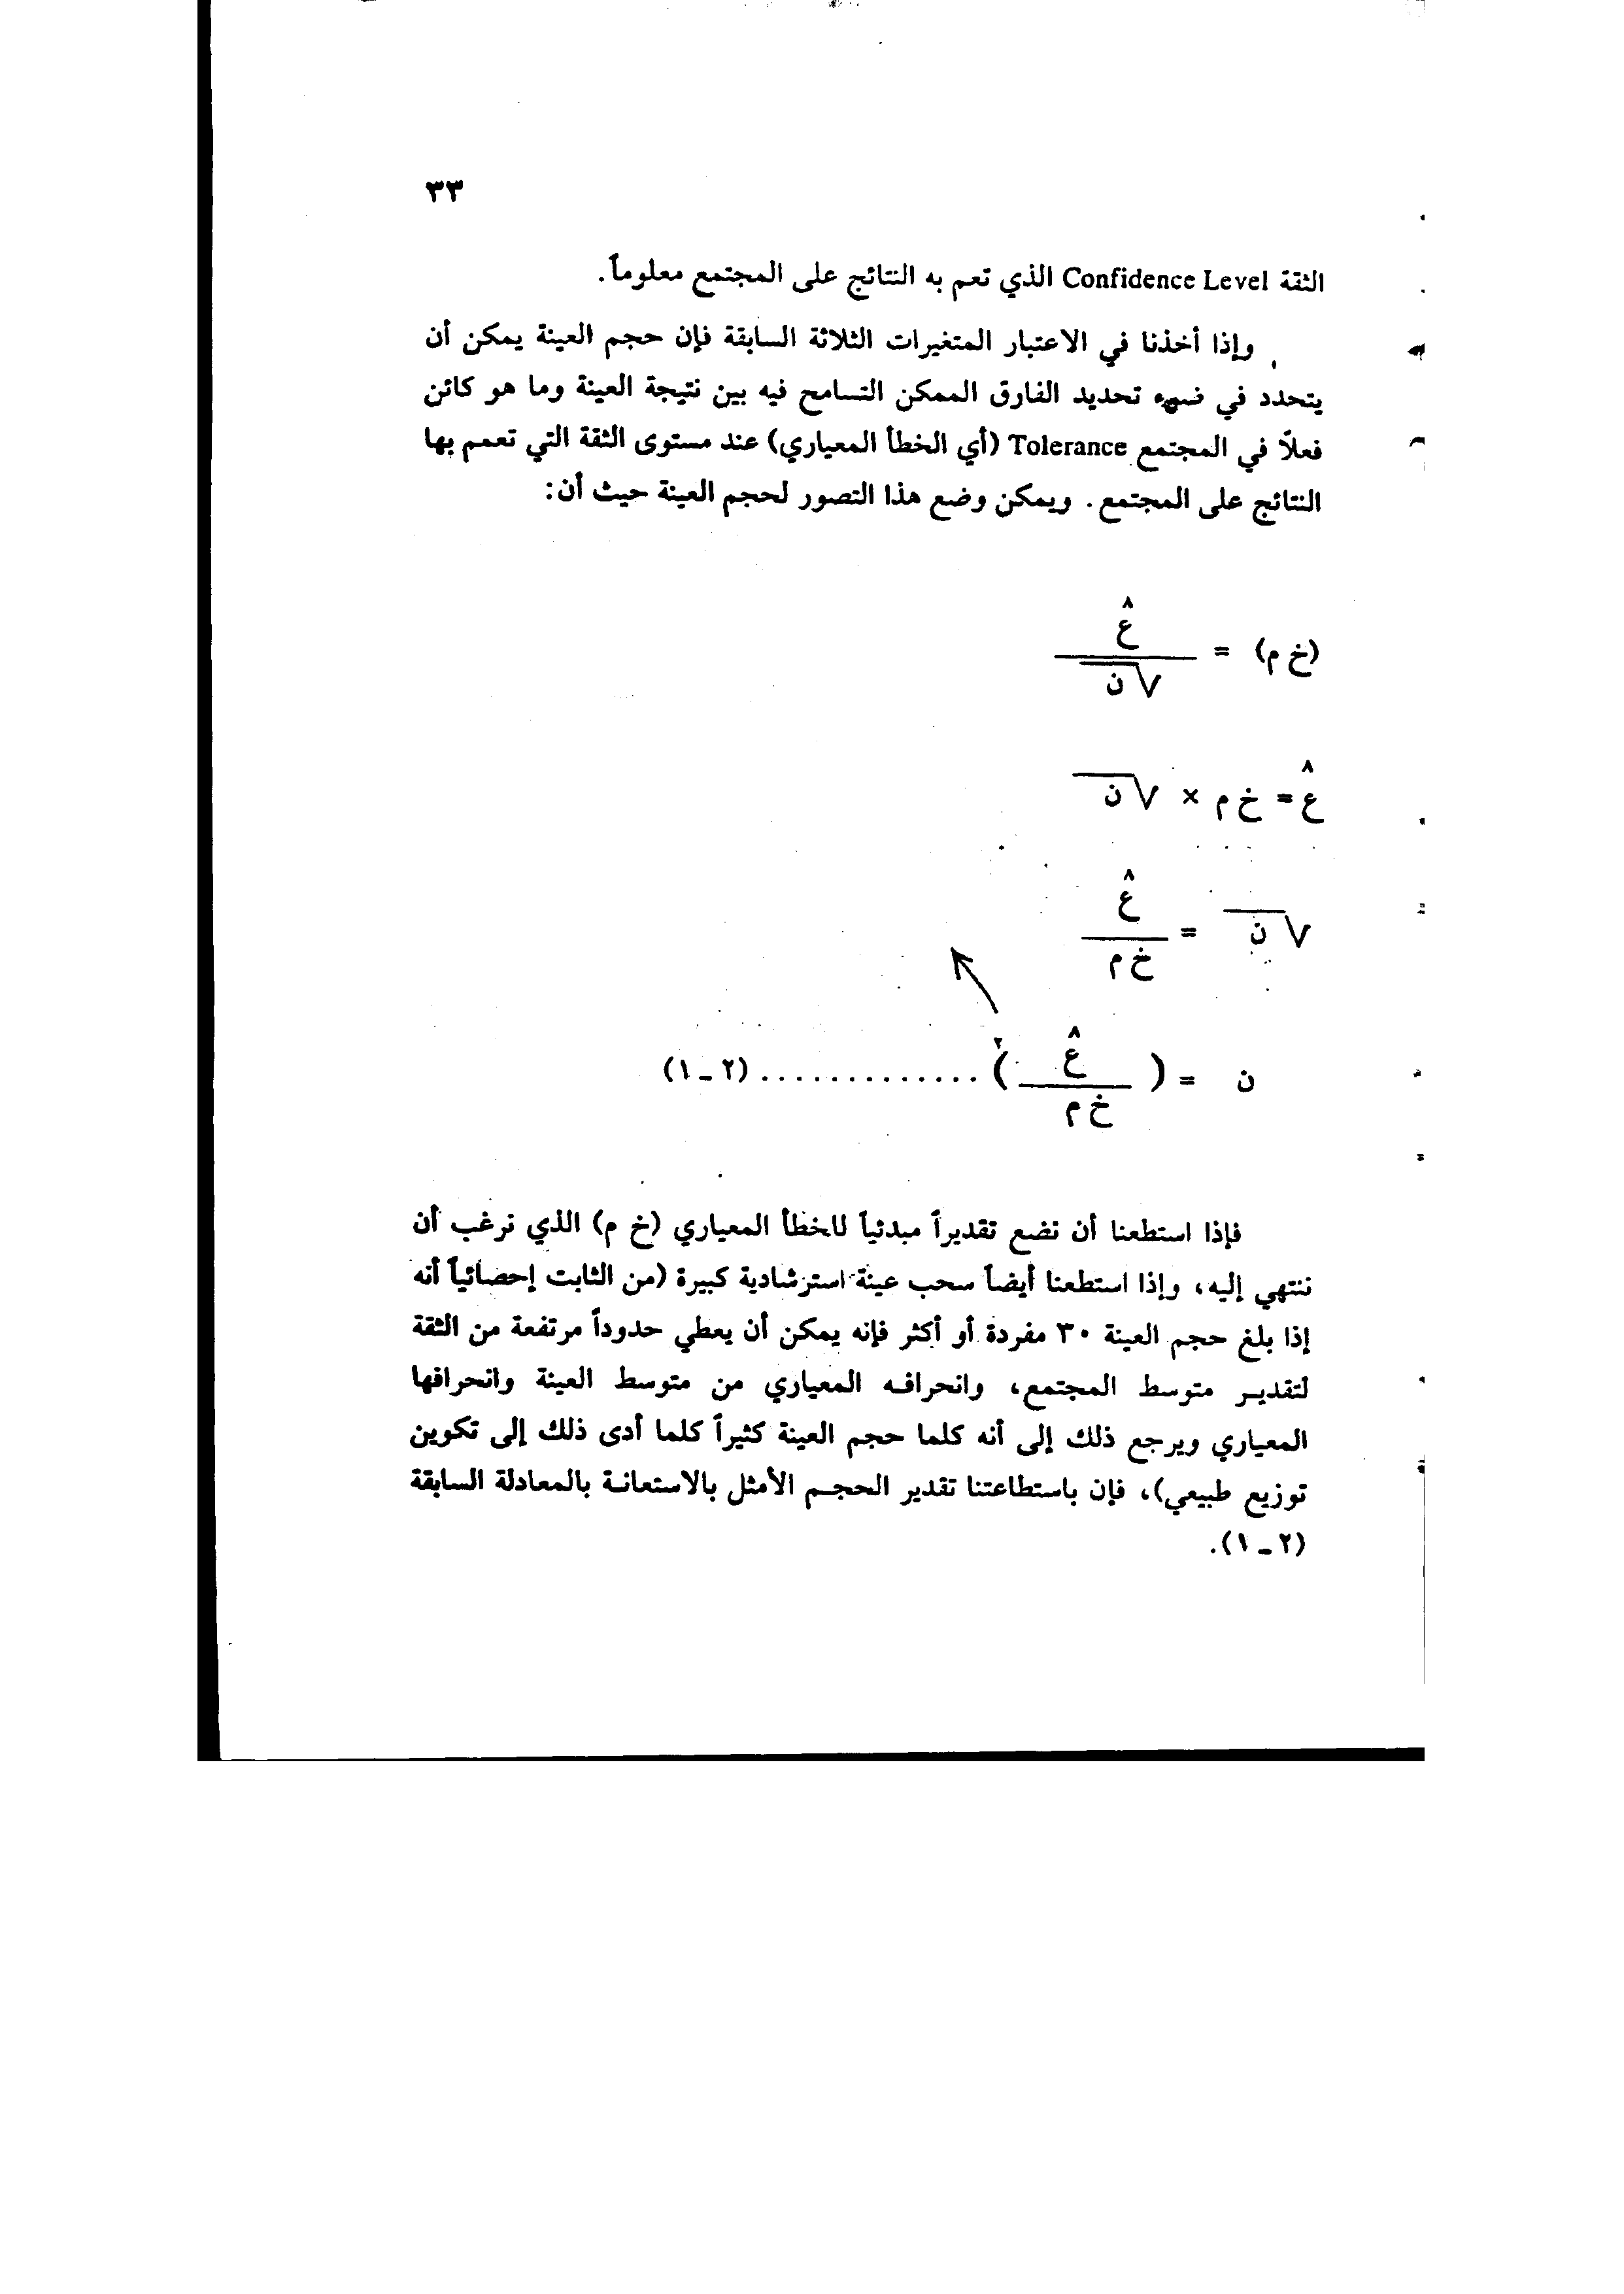 ٣٣
الثقة Confidence Level الذي تعم به النتائج على المجتمع معلوماً.
وإذا أخذنا في الاعتبار المتغيرات الثلاثة السابقة فإن حجم العينة يمكن أن
يتحدد في ضوء تحديد الفارق الممكن التسامح فيه بين نتيجة العينة وما هو كائن
فعلاً في المجتمع Tolerance (أي الخطأ المعياري) عند مستوى الثقة التي تعمم بها
النتائج على المجتمع. ويمكن وضع هذا التصور لحجم العينة حيث أن:
(خ م) = ع^ / √ن
ع^ = خ م × √ن
√ن = ع^ / خ م
ن = (ع^ / خ م)٢ ............. (٢ - ١)
فإذا استطعنا أن نضع تقديراً مبدئياً للخطأ المعياري (خ م) الذي نرغب أن
ننتهي إليه، وإذا استطعنا أيضاً سحب عينة استرشادية كبيرة (من الثابت إحصائياً أنه
إذا بلغ حجم العينة ٣٠ مفردة أو أكثر فإنه يمكن أن يعطي حدوداً مرتفعة من الثقة
لتقدير متوسط المجتمع، وانحرافه المعياري من متوسط العينة وانحرافها
المعياري ويرجع ذلك إلى أنه كلما حجم العينة كثيراً كلما أدى ذلك إلى تكوين
توزيع طبيعي)، فإن باستطاعتنا تقدير الحجم الأمثل بالاستعانة بالمعادلة السابقة
(٢ - ١).